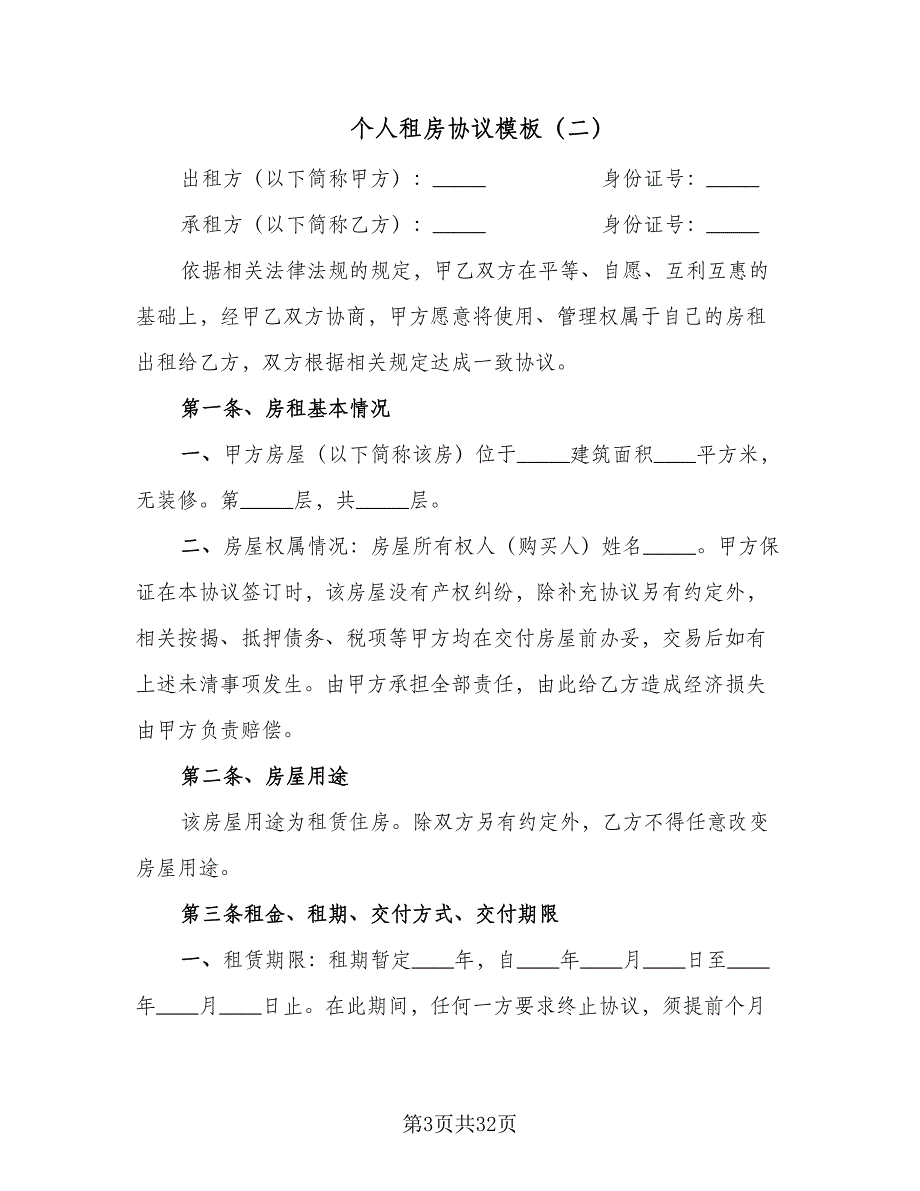 个人租房协议模板（二）
出租方（以下简称甲方）：_____ 身份证号：_____
承租方（以下简称乙方）：_____ 身份证号：_____
依据相关法律法规的规定，甲乙双方在平等、自愿、互利互惠的
基础上，经甲乙双方协商，甲方愿意将使用、管理权属于自己的房租
出租给乙方，双方根据相关规定达成一致协议。
第一条、房租基本情况
一、甲方房屋（以下简称该房）位于_____建筑面积____平方米，
无装修。第_____层，共_____层。
二、房屋权属情况：房屋所有权人（购买人）姓名_____。甲方保
证在本协议签订时，该房屋没有产权纠纷，除补充协议另有约定外，
相关按揭、抵押债务、税项等甲方均在交付房屋前办妥，交易后如有
上述未清事项发生。由甲方承担全部责任，由此给乙方造成经济损失
由甲方负责赔偿。
第二条、房屋用途
该房屋用途为租赁住房。除双方另有约定外，乙方不得任意改变
房屋用途。
第三条租金、租期、交付方式、交付期限
一、租赁期限：租期暂定____年，自____年____月____日至____
年____月____日止。在此期间，任何一方要求终止协议，须提前个月
第3页共32页